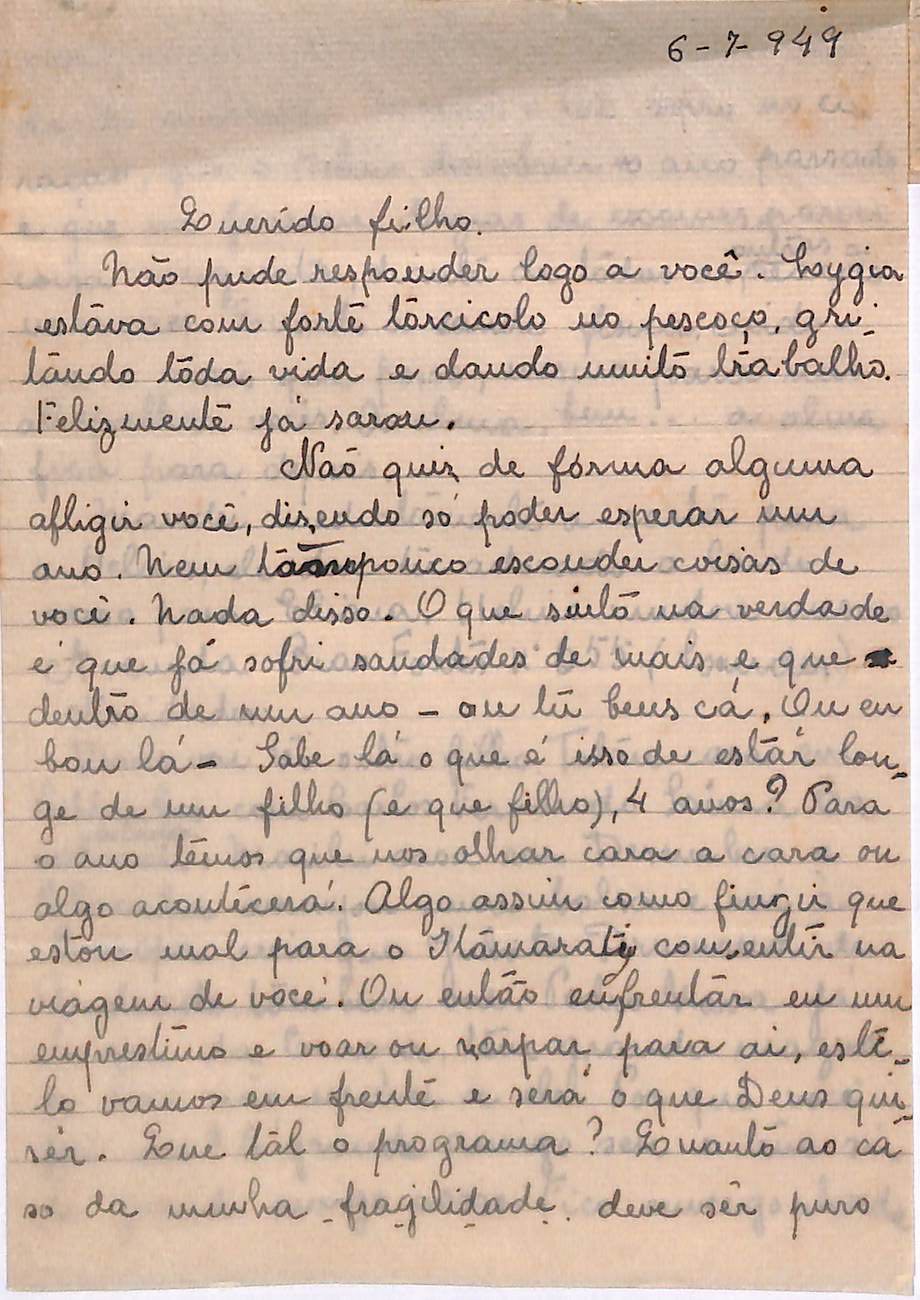 6-7-949
Querido filho.
Não pude responder logo a você. Lygia
estáva com forte tórcicolo no pescoço, gri-
tando tôda vida e dando muito trabalho.
Felizmente já sarou.
Naõ quiz de fórma alguma
afligir você, dizendo só poder esperar um
ano. Nem tampouco esconder coisas de
você. Nada disso. O que sinto na verdade
é que já sofri saudades de mais e que
dentro de um ano - ou tu bens cá, Ou eu
bou lá - Sabe lá o que é isso de estár lon-
ge de um filho (e que filho), 4 anos? Para
o ano têmos que nos olhar cara a cara ou
algo acontecerá. Algo assim como fingir que
estou mal para o Itámarati consentir na
viágem de você. Ou então enfrentár eu um
emprestimo e voar ou zarpar para ai, esti-
lo vamos em frente e será o que Deus qui-
sér. Que tál o programa? Quanto ao cá-
so da minha fragilidade deve sêr puro